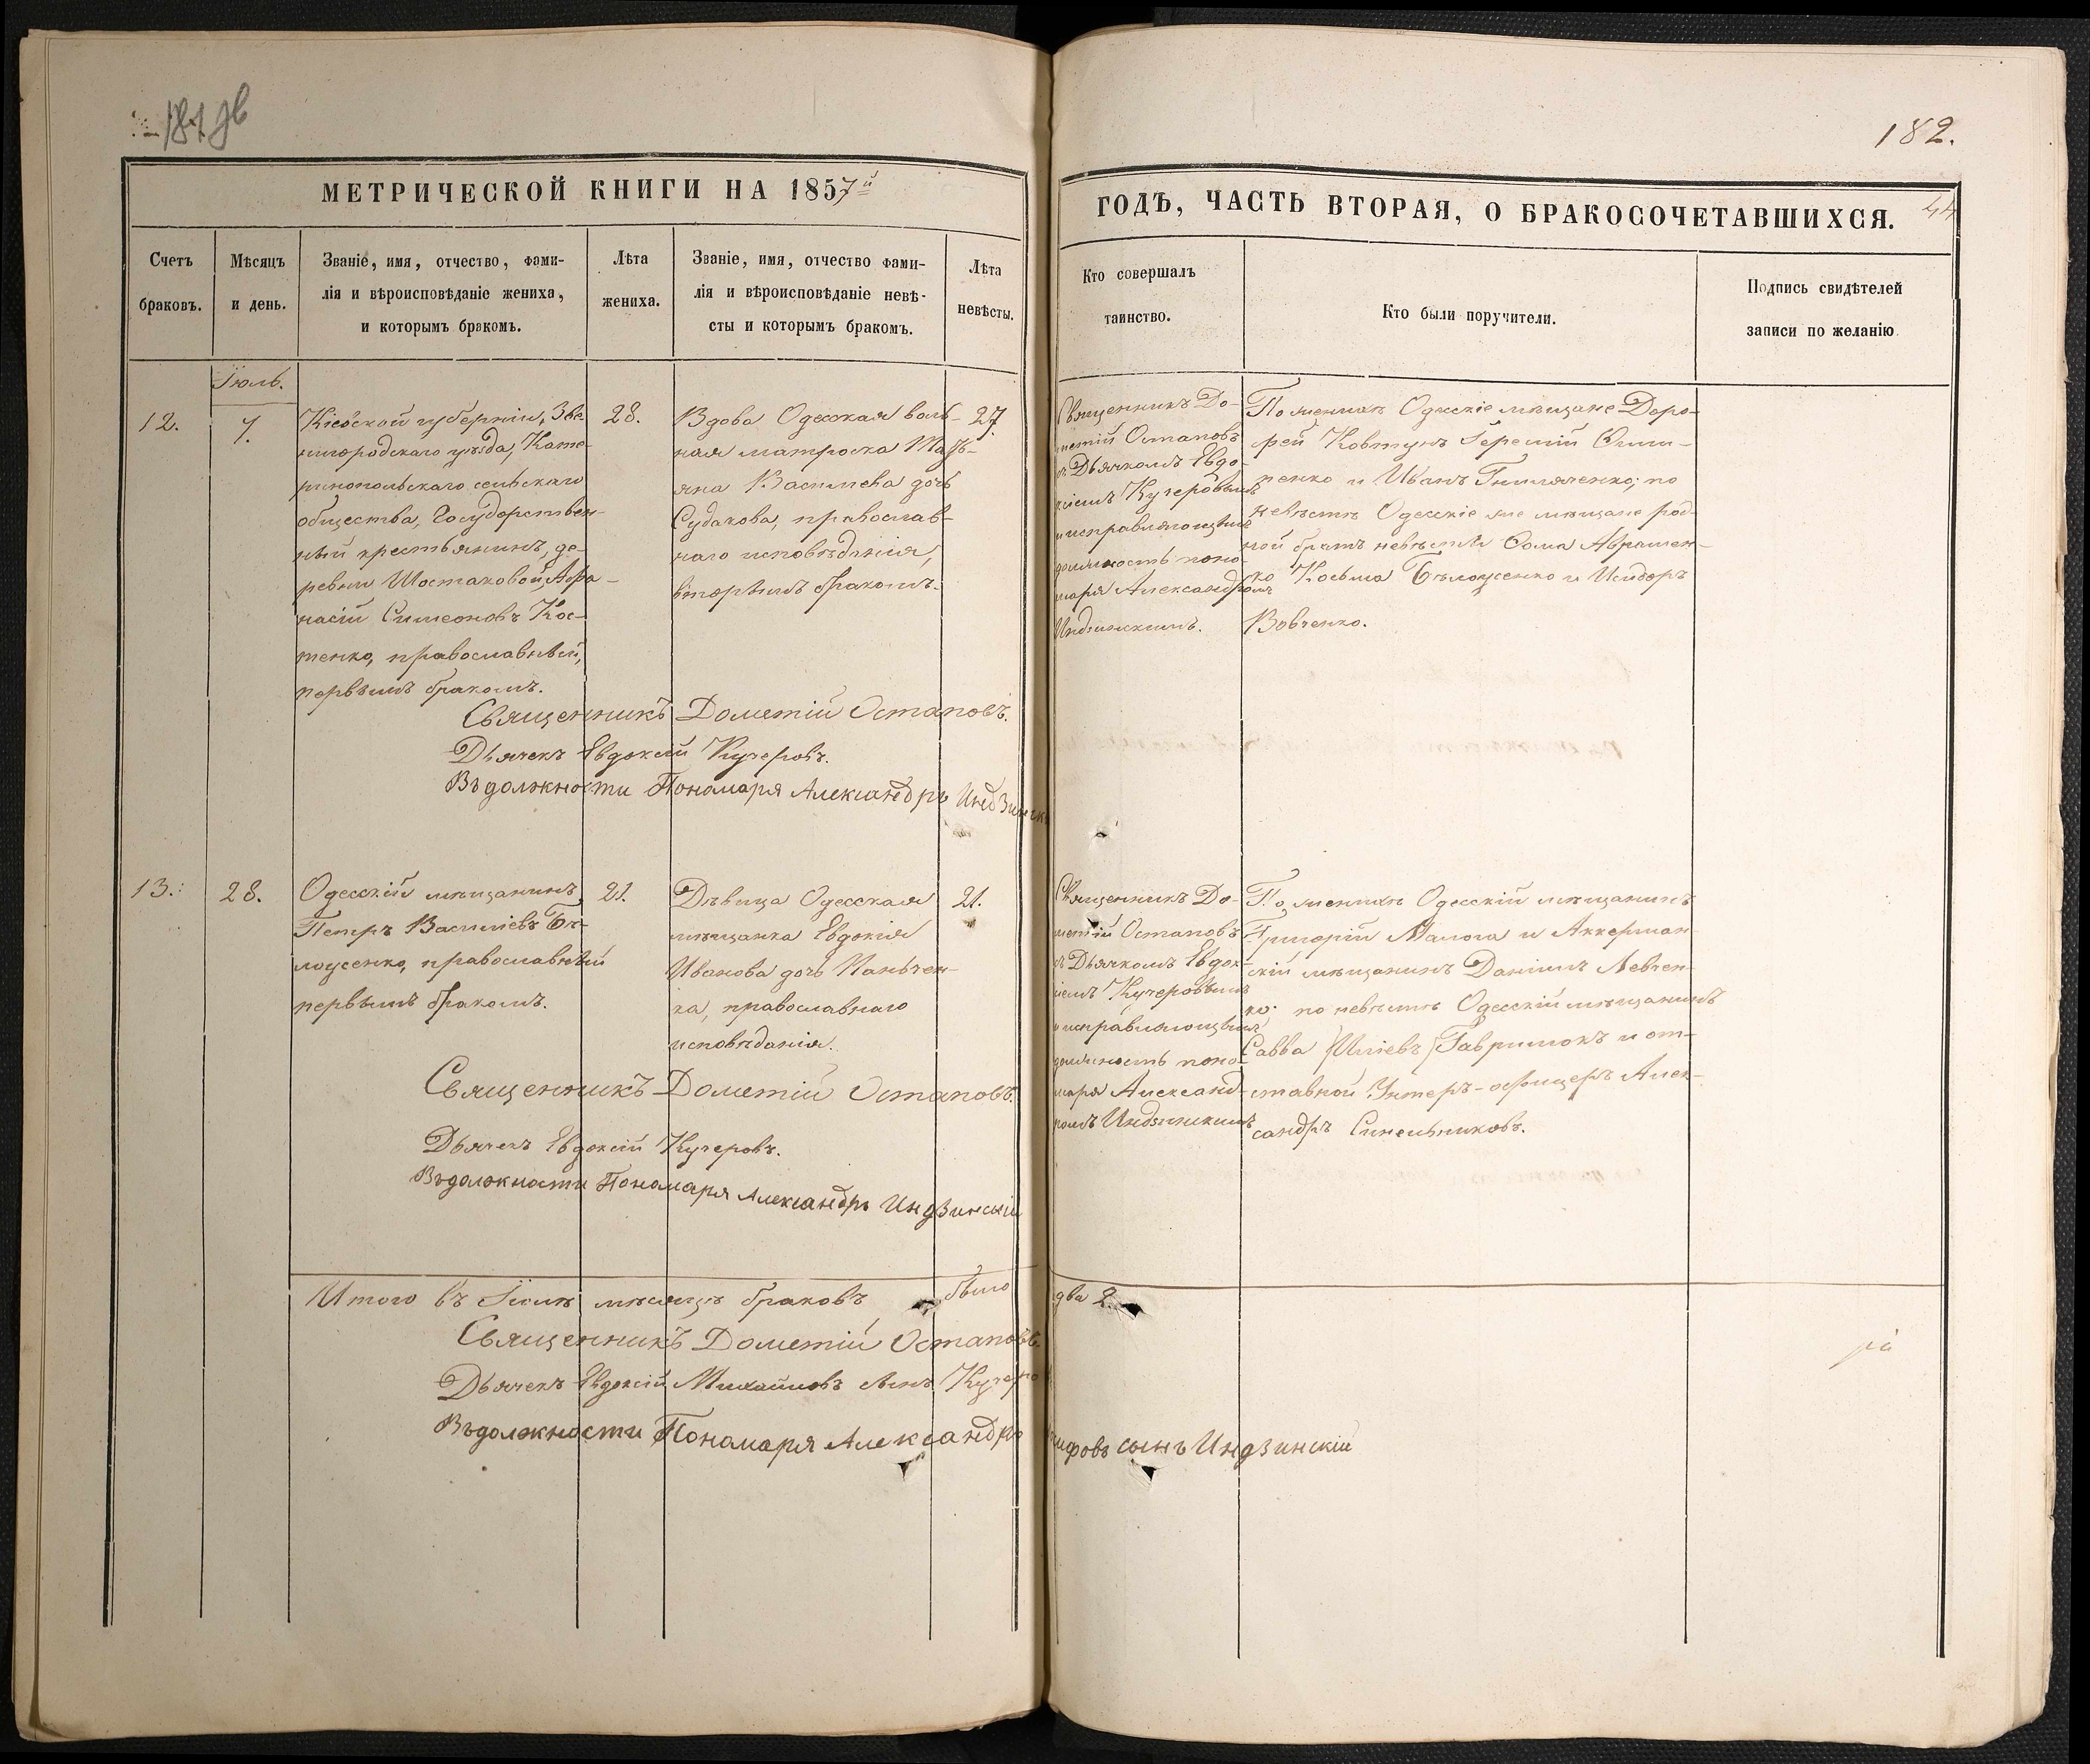 181 об
182.
МЕТРИЧЕСКОЙ КНИГИ НА 1857й
ГОДЪ, ЧАСТЬ ВТОРАЯ, О БРАКОСОЧЕТАВШИХСЯ.
44
Счетъ браковъ.
Мѣсяцъ и день.
Званіе, имя, отчество, фами-
лія и вѣроисповѣданіе жениха,
и которымъ бракомъ.
Лѣта жениха.
Званіе, имя, отчество фами-
лія и вѣроисповѣданіе невѣ-
сты и которымъ бракомъ.
Лѣта невѣсты.
Кто совершалъ
таинство.
Кто были поручители.
Подпись свидѣтелей
записи по желанію
Іюль.
12.
7.
Кіевской губерніи, Зве-
нигородскаго уѣзда, Кате-
ринопольскаго сельскаго
общества, Государствен-
ный крестьянинъ, де-
ревни Шостаковой, Афа-
насій Симеоновъ Кос-
тенко, православный,
первымъ бракомъ.
28.
Вдова Одесская воль-
ная матроска Марь-
яна Васильева дочь
Судакова, православ-
наго исповѣданія,
вторымъ бракомъ.
27.
Священникъ До-
метій Остаповъ
съ Дьячкомъ Евдо-
ксіемъ Кучеровымъ
и исправляющимъ
должность поно-
маря Александромъ
Индзинскимъ.
По женихѣ Одескіе мѣщане Доро-
фей Ковтунъ Іеремій
и Иванъ Гниляченко; по
невѣстѣ Одесскіе же мѣщане род-
ной братъ невѣсты Ѳома Авра­мен-
ко Косьма Бѣлоусенко и Исидоръ
Вовченко.
Священникъ Дометій Остаповъ.
Дьячекъ Евдоксій Кучеровъ.
Въ должности Пономаря Александръ Индзинскі
13.
28.
Одесскій мѣщанинъ
Петръ Васильевъ Бѣ-
лоусенко, православный
первымъ бракомъ.
21.
Дѣвица Одесская
мѣщанка Евдокія
Иванова дочь Паньчен-
ка, православнаго
исповѣданія.
21.
Священникъ До-
метій Остаповъ
съ Дьячкомъ Евдок-
сіемъ Кучеровымъ
и исправляющимъ
должность поно-
маря Александ-
ромъ Индзинскимъ
По женихѣ Одесскій мѣщанинъ
Григорій Малога и Аккерман-
скій мѣщанинъ Даніилъ Левчен-
ко; по невѣстѣ Одесскій мѣщанинъ
Савва Гаврилюкъ и от-
ставной Унтеръ-офицеръ Алек-
сандръ Синельниковъ.
Священникъ Дометій Остаповъ.
Дьячекъ Евдоксій Кучеровъ.
Въ должности Пономаря Александръ Индзинскій
Итого въ Іюлѣ мѣсяцѣ браковъ было два 2.
Священникъ Дометій Остаповъ.
Дьячекъ Евдоксій Михайловъ сынъ Кучеро
Въ должности Пономаря Александръ сынъ Индзинскій